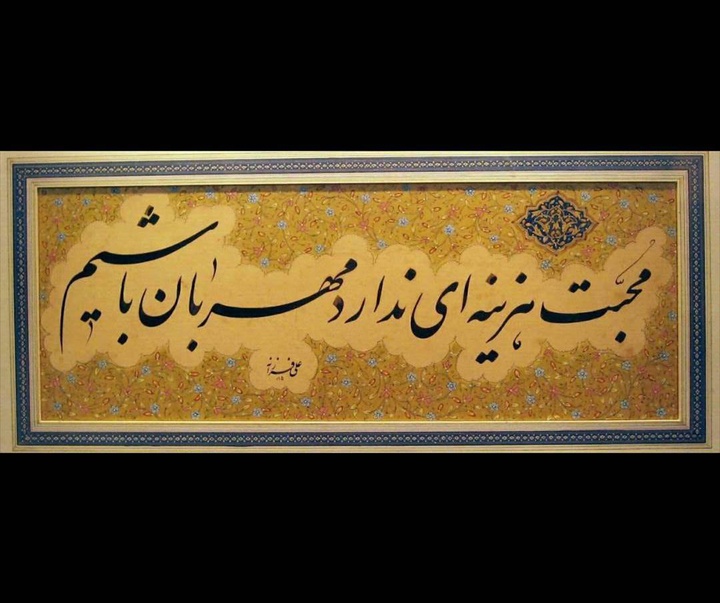 محبت هزینه ای ندارد مهربان باشیم
علی فرزانه